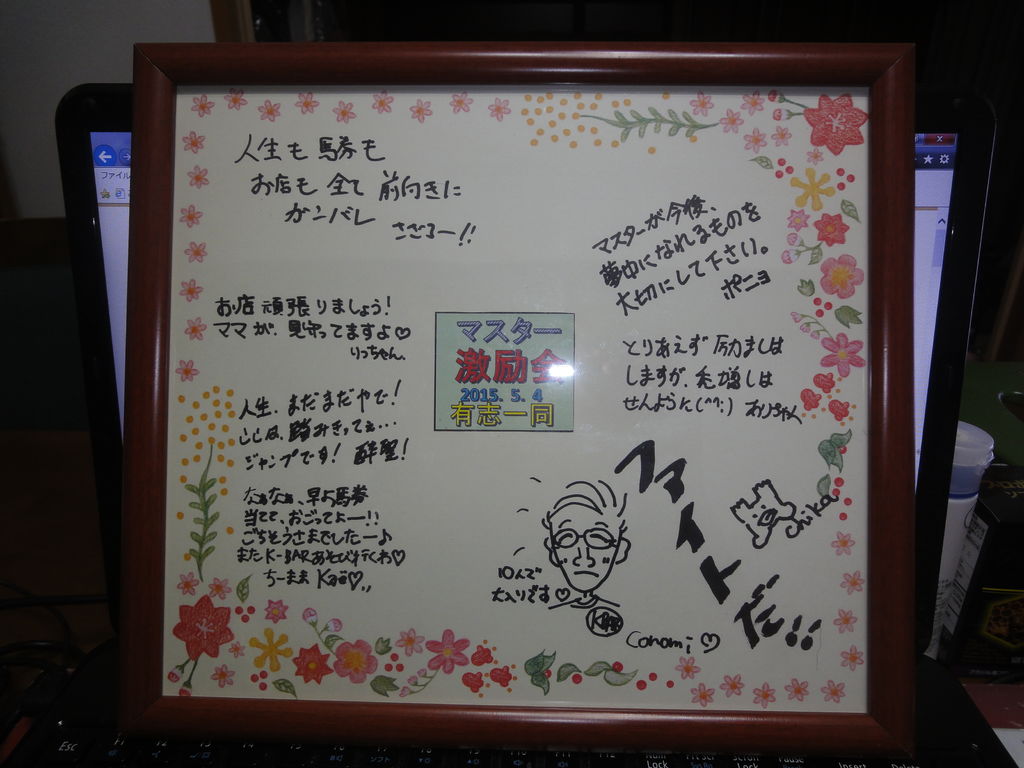 人生も馬券も
お店も全て前向きに
ガンバレ
さぶろー!!
マスターが今後、
夢中になれるものを
大切にして下さい。
ポニョ
お店頑張りましょう!
ママが、見守ってますよ♡
りっちゃん。
マスター
激励会
2015. 5. 4
有志一同
とりあえず励ましは
しますが、禿増しは
せんように(^^;)
人生、まだまだやで!
ししは、踏みきってぇ…
ジャンプです!
なぁなぁ、早よ馬券
当てて、おごってよー!!
ごちそうさまでしたー♪
またK-BARあそび行くわ♡
ちーまま Kaë♡
ファイトだ!!
chika
10人で
大入りです♡
KBAR
Conomi♡
ファイル
Esc